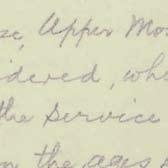 se, Upper Mo
idered, whe
the service
n the ages